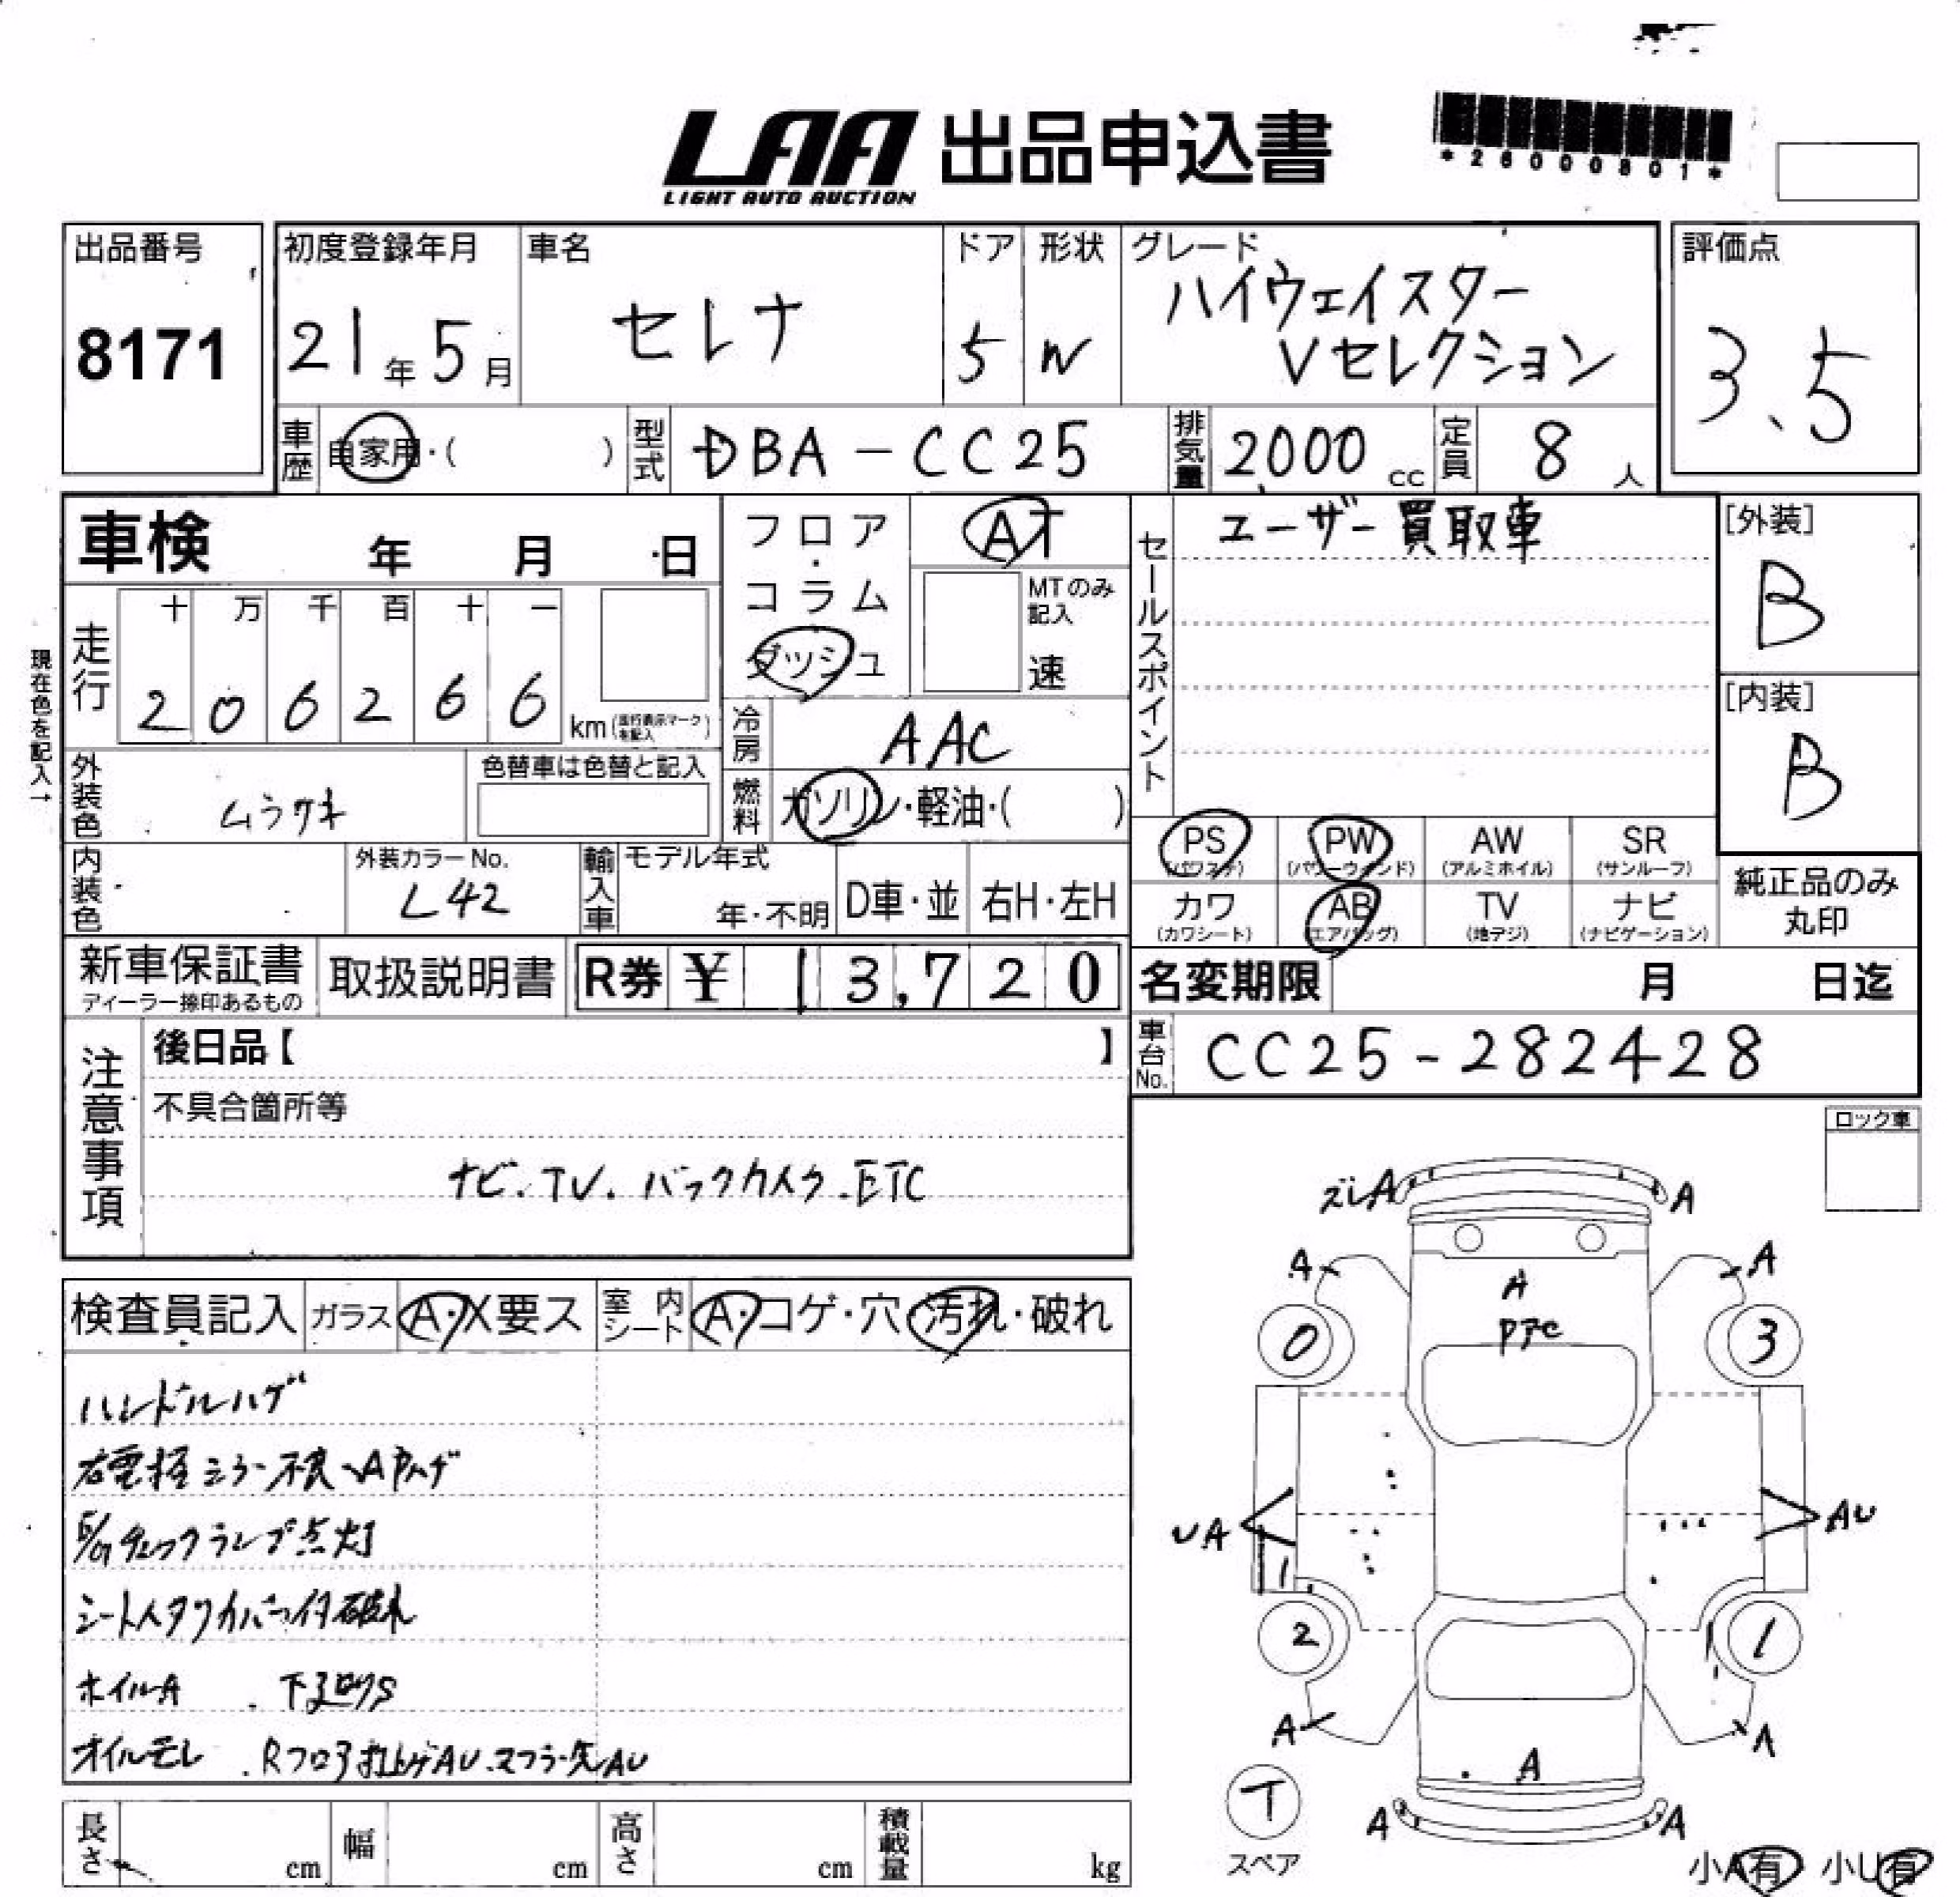 LAA 出品申込書
LIGHT AUTO AUCTION
*26000801*
出品番号
8171
初度登録年月
21年5月
車名
セレナ
ドア
5
形状
W
グレード
ハイウェイスター
Vセレクション
評価点
3.5
車歴
自家用・( )
型式
DBA-CC25
排気量
2000cc
定員
8人
車検 年 月 日
フロア・コラム
ダッシュ
AT
MTのみ記入
速
セールスポイント
ユーザー買取車
[外装]
B
[内装]
B
現在色を記入→
走行
十 万 千 百 十 一
2 0 6 2 6 6 km
(走行表示マークを記入)
冷房
AAC
外装色
ムラサキ
色替車は色替と記入
燃料
ガソリン・軽油・( )
内装色
外装カラーNo.
L42
輸入車
モデル年式
年・不明
D車・並
右H・左H
PS
(パワステ)
PW
(パワーウィンド)
AW
(アルミホイル)
SR
(サンルーフ)
カワ
(カワシート)
AB
(エアバッグ)
TV
(地デジ)
ナビ
(ナビゲーション)
純正品のみ
丸印
新車保証書
ディーラー捺印あるもの
取扱説明書
R券 ¥13,720
名変期限 月 日迄
車台No.
CC25-282428
注意事項
後日品【 】
不具合箇所等
ナビ.TV.バックカメラ.ETC
ロック車
検査員記入
ガラス
A・X要ス
室内シート
A・コゲ・穴・汚れ・破れ
ハンドルハゲ
右電格ミラー不良
E/Gチェックランプ点灯
シート
ホイルA . 下廻りS
オイルモレ . Rフロア AU.マフラー AU
ズレA
A
A
A
A
0
3
UA
AU
1
2
1
A
A
A
A
A
T
スペア
小A有 小U有
長さ cm
幅 cm
高さ cm
積載量 kg